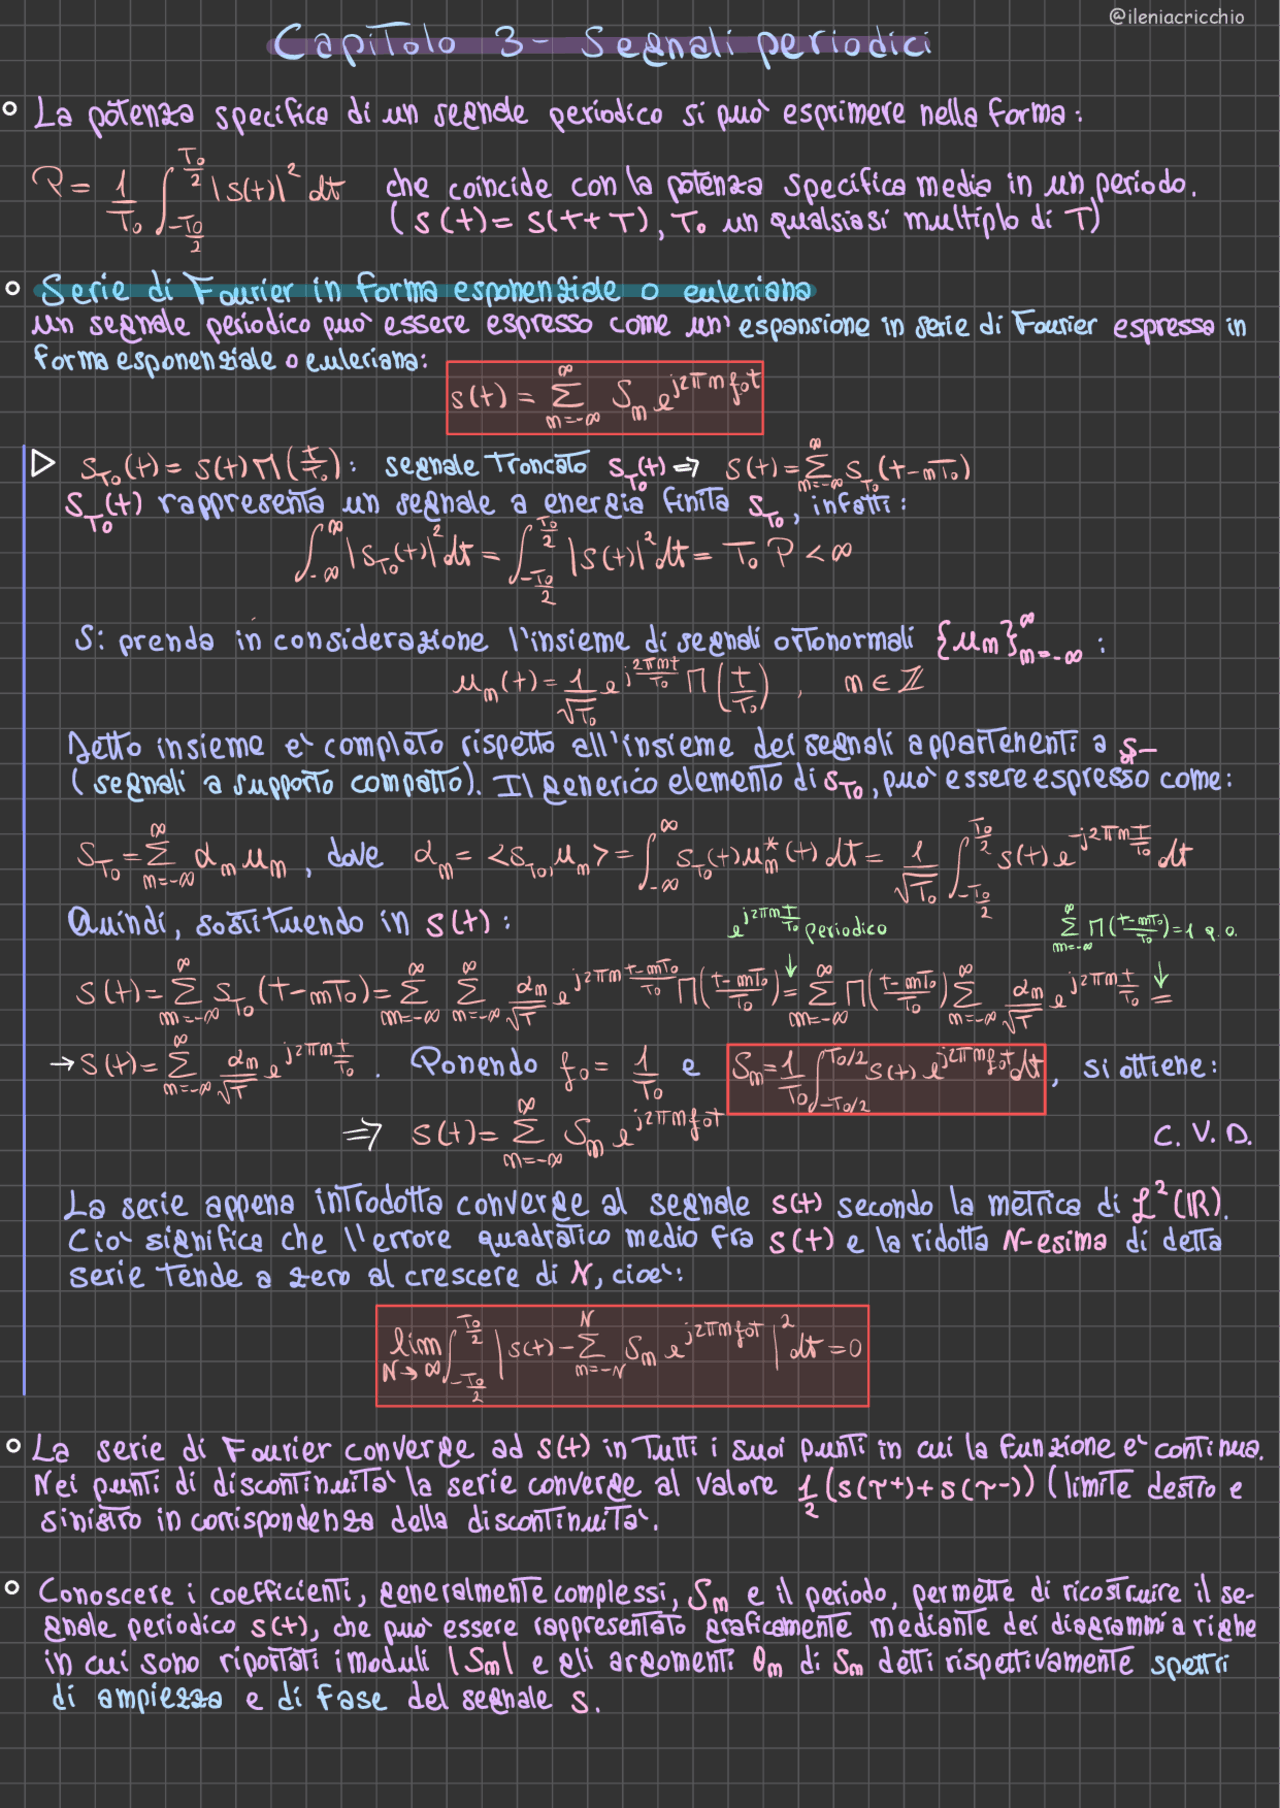 @ileniacricchio
Capitolo 3 - Segnali periodici
La potenza specifica di un segnale periodico si può esprimere nella forma:
P = 1/T₀ ∫_{-T₀/2}^{T₀/2} |s(t)|² dt che coincide con la potenza specifica media in un periodo.
(s(t) = s(t+T), T₀ un qualsiasi multiplo di T)
Serie di Fourier in forma esponenziale o euleriana
un segnale periodico può essere espresso come un' espansione in serie di Fourier espressa in
forma esponenziale o euleriana:
s(t) = Σ_{m=-∞}^{∞} S_m e^{j2πm f₀t}
s_{T₀}(t) = s(t) Π(t/T₀): segnale troncato s_{T₀}(t) ⇒ s(t) = Σ_{m=-∞}^{∞} s_{T₀}(t-mT₀)
s_{T₀}(t) rappresenta un segnale a energia finita s_{T₀}, infatti:
∫_{-∞}^{∞} |s_{T₀}(t)|² dt = ∫_{-T₀/2}^{T₀/2} |s(t)|² dt = T₀ P < ∞
Si prenda in considerazione l'insieme di segnali ortonormali {u_m}_{m=-∞}^{∞} :
u_m(t) = 1/√T₀ e^{j2πmt/T₀} Π(t/T₀) , m ∈ ℤ
Detto insieme è completo rispetto all'insieme dei segnali appartenenti a s_
(segnali a supporto compatto). Il generico elemento di s_{T₀}, può essere espresso come:
s_{T₀} = Σ_{m=-∞}^{∞} α_m u_m , dove α_m = <s_{T₀}, u_m> = ∫_{-∞}^{∞} s_{T₀}(t) u_m*(t) dt = 1/√T₀ ∫_{-T₀/2}^{T₀/2} s(t) e^{-j2πm t/T₀} dt
Quindi, sostituendo in s(t):
e^{j2πm t/T₀} periodico
Σ_{m=-∞}^{∞} Π((t-mT₀)/T₀) = 1 q.o.
s(t) = Σ_{m=-∞}^{∞} s_{T₀}(t-mT₀) = Σ_{m=-∞}^{∞} Σ_{m=-∞}^{∞} α_m/√T e^{j2πm (t-mT₀)/T₀} Π((t-mT₀)/T₀) ↓= Σ_{m=-∞}^{∞} Π((t-mT₀)/T₀) Σ_{m=-∞}^{∞} α_m/√T e^{j2πm t/T₀} ↓=
→ s(t) = Σ_{m=-∞}^{∞} α_m/√T e^{j2πm t/T₀} . Ponendo f₀ = 1/T₀ e S_m = 1/T₀ ∫_{-T₀/2}^{T₀/2} s(t) e^{j2πm f₀t} dt , si ottiene:
⇒ s(t) = Σ_{m=-∞}^{∞} S_m e^{j2πm f₀t}
C.V.D.
La serie appena introdotta converge al segnale s(t) secondo la metrica di ℒ²(ℝ).
Ciò significa che l'errore quadratico medio fra s(t) e la ridotta N-esima di detta
serie tende a zero al crescere di N, cioè:
lim_{N→∞} ∫_{-T₀/2}^{T₀/2} | s(t) - Σ_{m=-N}^{N} S_m e^{j2πm f₀t} |² dt = 0
La serie di Fourier converge ad s(t) in tutti i suoi punti in cui la funzione è continua.
Nei punti di discontinuità la serie converge al valore 1/2 (s(τ⁺) + s(τ⁻)) (limite destro e
sinistro in corrispondenza della discontinuità.
Conoscere i coefficienti, generalmente complessi, S_m e il periodo, permette di ricostruire il se-
gnale periodico s(t), che può essere rappresentato graficamente mediante dei diagrammi a righe
in cui sono riportati i moduli |S_m| e gli argomenti θ_m di S_m detti rispettivamente spettri
di ampiezza e di fase del segnale s.